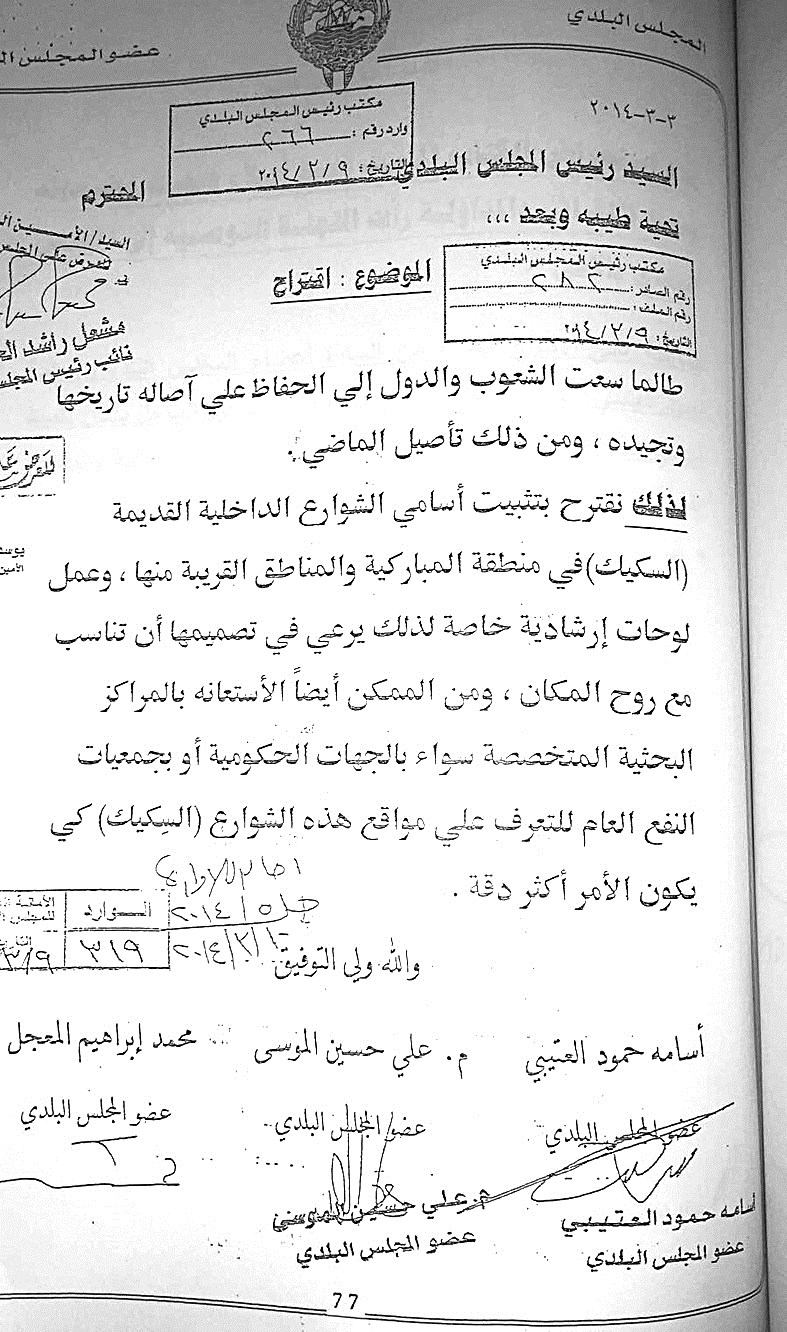 المجلس البلدي
عضو المجلس
٣-٣-٢٠١٤
مكتب رئيس المجلس البلدي
وارد رقم : ٢٦٦
التاريخ : ٢٠١٤/٣/٩
السيد رئيس المجلس البلدي المحترم
تحية طيبه وبعد ...
السيد/الأمين
مكتب رئيس المجلس البلدي
رقم الصادر : ٢٨٢
رقم الملف :
التاريخ : ٢٠١٤/٣/٩
الموضوع : اقتراح
مشعل راشد
نائب رئيس المجلس
طالما سعت الشعوب والدول إلي الحفاظ علي آصاله تاريخها
وتجيده ، ومن ذلك تأصيل الماضي .
لذلك نقترح بتثبيت أسامي الشوارع الداخلية القديمة
(السكيك) في منطقة المباركية والمناطق القريبة منها ، وعمل
لوحات إرشادية خاصة لذلك يرعي في تصميمها أن تناسب
مع روح المكان ، ومن الممكن أيضاً الأستعانه بالمراكز
البحثية المتخصصة سواء بالجهات الحكومية أو بجمعيات
النفع العام للتعرف علي مواقع هذه الشوارع (السِكيك) كي
يكون الأمر أكثر دقة .
الوارد
٣١٩
والله ولي التوفيق
أسامه حمود العتيبي م. علي حسين الموسى محمد إبراهيم المعجل
عضو المجلس البلدي عضو المجلس البلدي عضو المجلس البلدي
أسامه حمود العتيبي م. علي حسين الموسى
عضو المجلس البلدي عضو المجلس البلدي
77